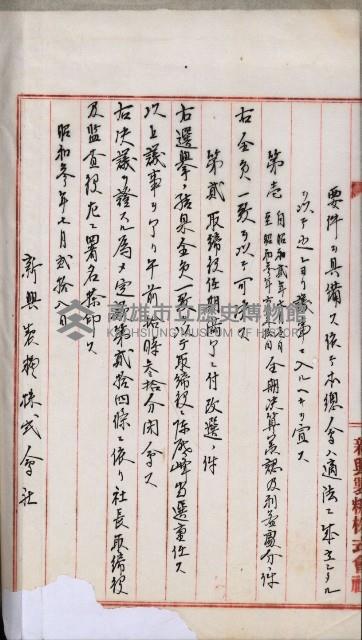 要件ヲ具備ス依テ本總會ハ適法ニ成立シタル
ヲ以テ之ヨリ議事ニ入ルヘキヲ宣ス
第壱 自昭和貳年 至昭和參年 全期決算承認及利益處分ノ件
右全員一致ヲ以テ可決ス
第貳 取締役任期満了ニ付改選ノ件
右選擧ノ結果全員一致ヲ以テ取締役陳 當選重任ス
以上議事ヲ了リ午前拾時參拾分閉會ス
右決議ヲ證スル為メ定款第貳拾四條ニ依リ社長取締役
及監査役左ニ署名捺印ス
昭和參年七月貳拾八日
新興製糖株式會社
新興製糖株式會社
高雄市立歷史博物館
KAOHSIUNG MUSEUM OF HISTORY